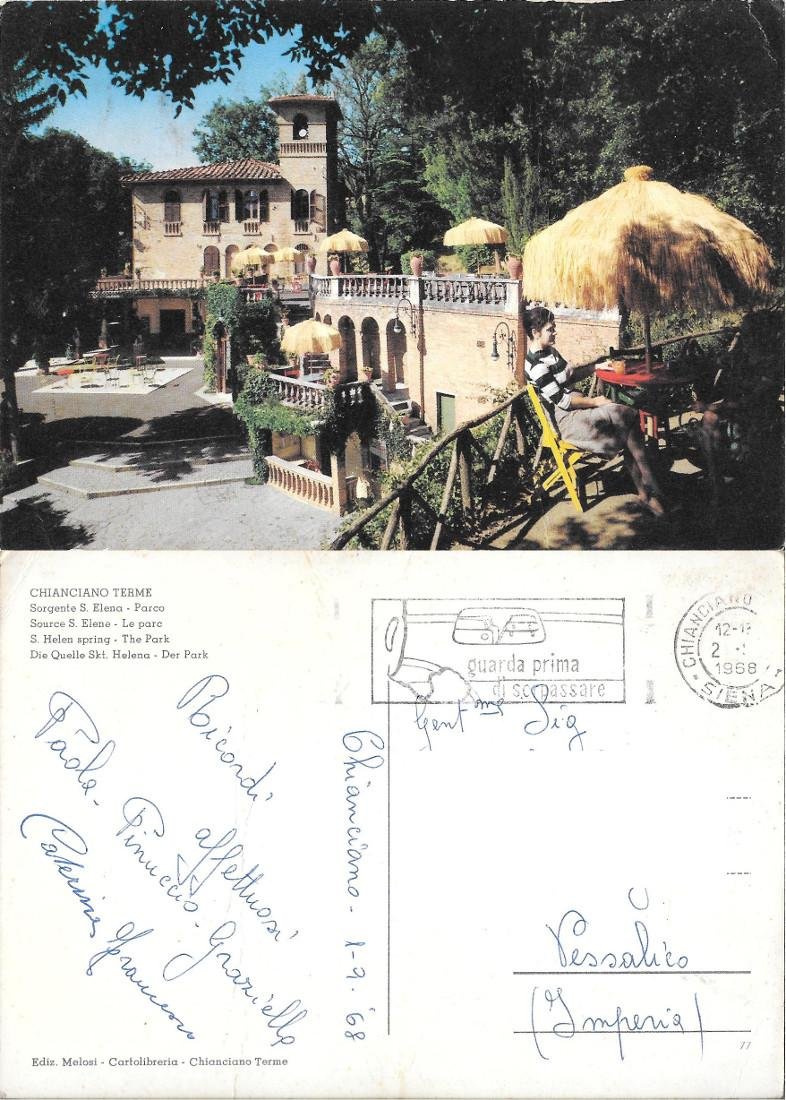 CHIANCIANO TERME
Sorgente S. Elena - Parco
Source S. Elene - Le parc
S. Helen spring - The Park
Die Quelle Skt. Helena - Der Park
guarda prima
di sorpassare
CHIANCIANO
12-1
2
1968
SIENA
Chianciano - 1-9-'68
Ricordi
affettuosi
Paola - Pinuccio - Graziella
Caterina Francesco
Gent.me Sig
Vessalico
(Imperia)
77
Ediz. Melosi - Cartolibreria - Chianciano Terme